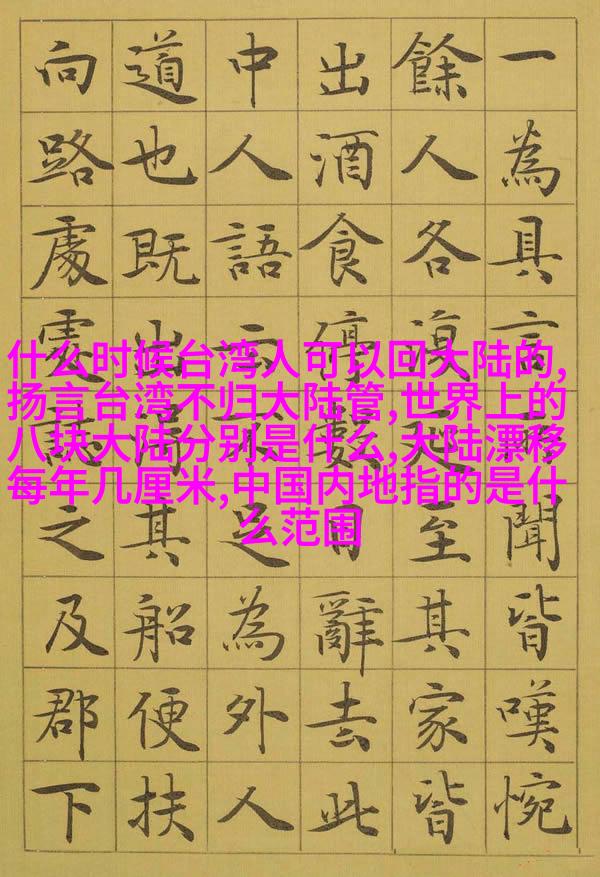 一為具言所聞皆嘆惋
餘人各復延至其家皆
出酒食停數日辭去此
中人語云不足為外人
道也既出得其船便扶
向路處處誌之及郡下
什么时候台湾人可以回大陆的,
扬言台湾不归大陆管,世界上的
八块大陆分别是什么,大陆漂移
每年几厘米,中国内地指的是什
么范围